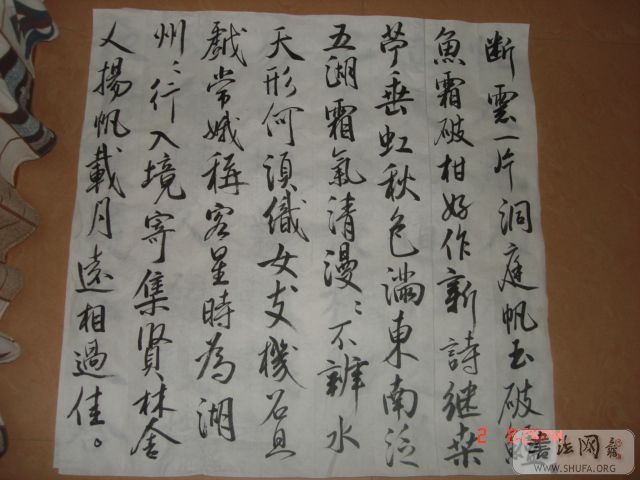 断雲一片洞庭帆玉破
魚霜破柑好作新詩继桑
苧垂虹秋色滿東南泛
五湖霜氣清漫〻不辨水
天形何須織女支機石且
戲常娥稱客星時為湖
州之行入境寄集賢林舍
人揚帆載月遠相過佳。
書法网
WWW.SHUFA.ORG